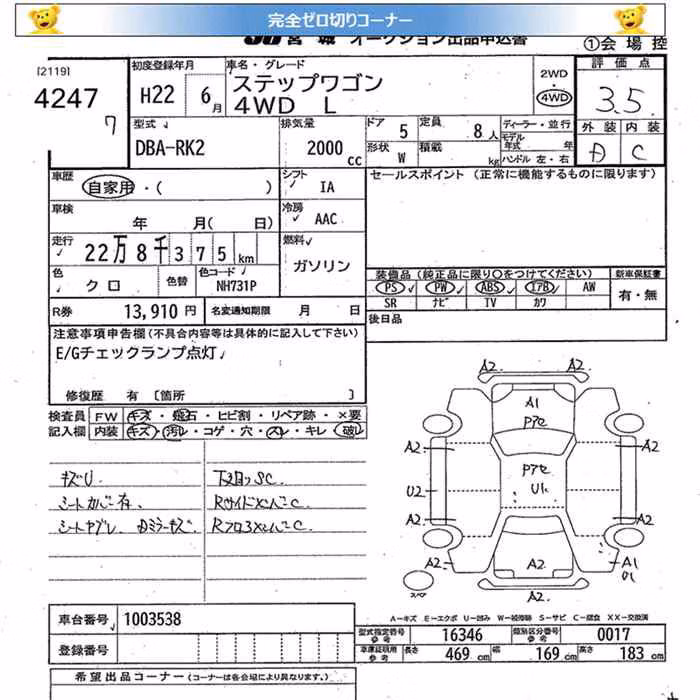 完全ゼロ切りコーナー
JU宮城 オークション出品申込書
①会場控
[2119]
4247
7
初度登録年月
H22 6月
車名・グレード
ステップワゴン
4WD L
2WD
・
4WD
評価点
3.5
外装 内装
D C
型式
DBA-RK2
排気量
2000 cc
ドア 5
定員 8人
形状 W
積載 kg
ディーラー・並行
モデル年式 年
ハンドル 左・右
車歴
自家用・( )
シフト
IA
車検
年 月( 日)
冷房
AAC
走行
22万8千375km
燃料
ガソリン
色
クロ
色替
色コード
NH731P
R券 13,910円
名変通知期限 月 日
セールスポイント (正常に機能するものに限ります)
装備品(純正品に限り○をつけてください)
PS PW ABS エアB AW
SR ナビ TV カワ
新車保証書
有・無
後日品
注意事項申告欄(不具合内容等は具体的に記入して下さい)
E/Gチェックランプ点灯
修復歴 有 [箇所 ]
検査員記入欄
FW キズ・飛石・ヒビ割・リペア跡・×要
内装 キズ・汚レ・コゲ・穴・スレ・キレ・破レ
キズU
シートカバー有、
シートヤブレ
Dミラーキズ
下廻りSC
RサイドメンバーC
RフロアメンバーC
A2 A2
A1
Pアセ
A2 A2
Pアセ
U1
U2 U2
A2 A2
A2 A2 A1
U1
スペア
A2
A－キズ E－エクボ U－凹み W－補修跡 S－サビ C－腐食 XX－交換済
車台番号 1003538
登録番号
型式指定番号参考 16346
類別区分番号参考 0017
車庫証明用参考 長さ 469cm 幅 169cm 高さ 183cm
希望出品コーナー(コーナーは各会場により異なります。)